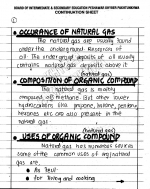 BOARD OF INTERMEDIATE & SECONDARY EDUCATION PESHAWAR KHYBER PAKHTUNKHWA
CONTINUATION SHEET
OCCURANCE OF NATURAL GAS
The natural gas are usually found
under the underground Reservoirs of
oil. The underground deposits of oil usually
contains natural gas deposits above it
(natural gas)
COMPOSITION OF ORGANIC COMPOUND
The natural gas is mainly
composed of Methane but other lower
hydrocarbons like propane, butane, pentane,
hexanes etc are also present in the
natural gas
USES OF ORGANIC COMPOUND
(natural gas)
Natural gas has numerous
some of the common uses of natural
gas are
As fuel
for living and cooking